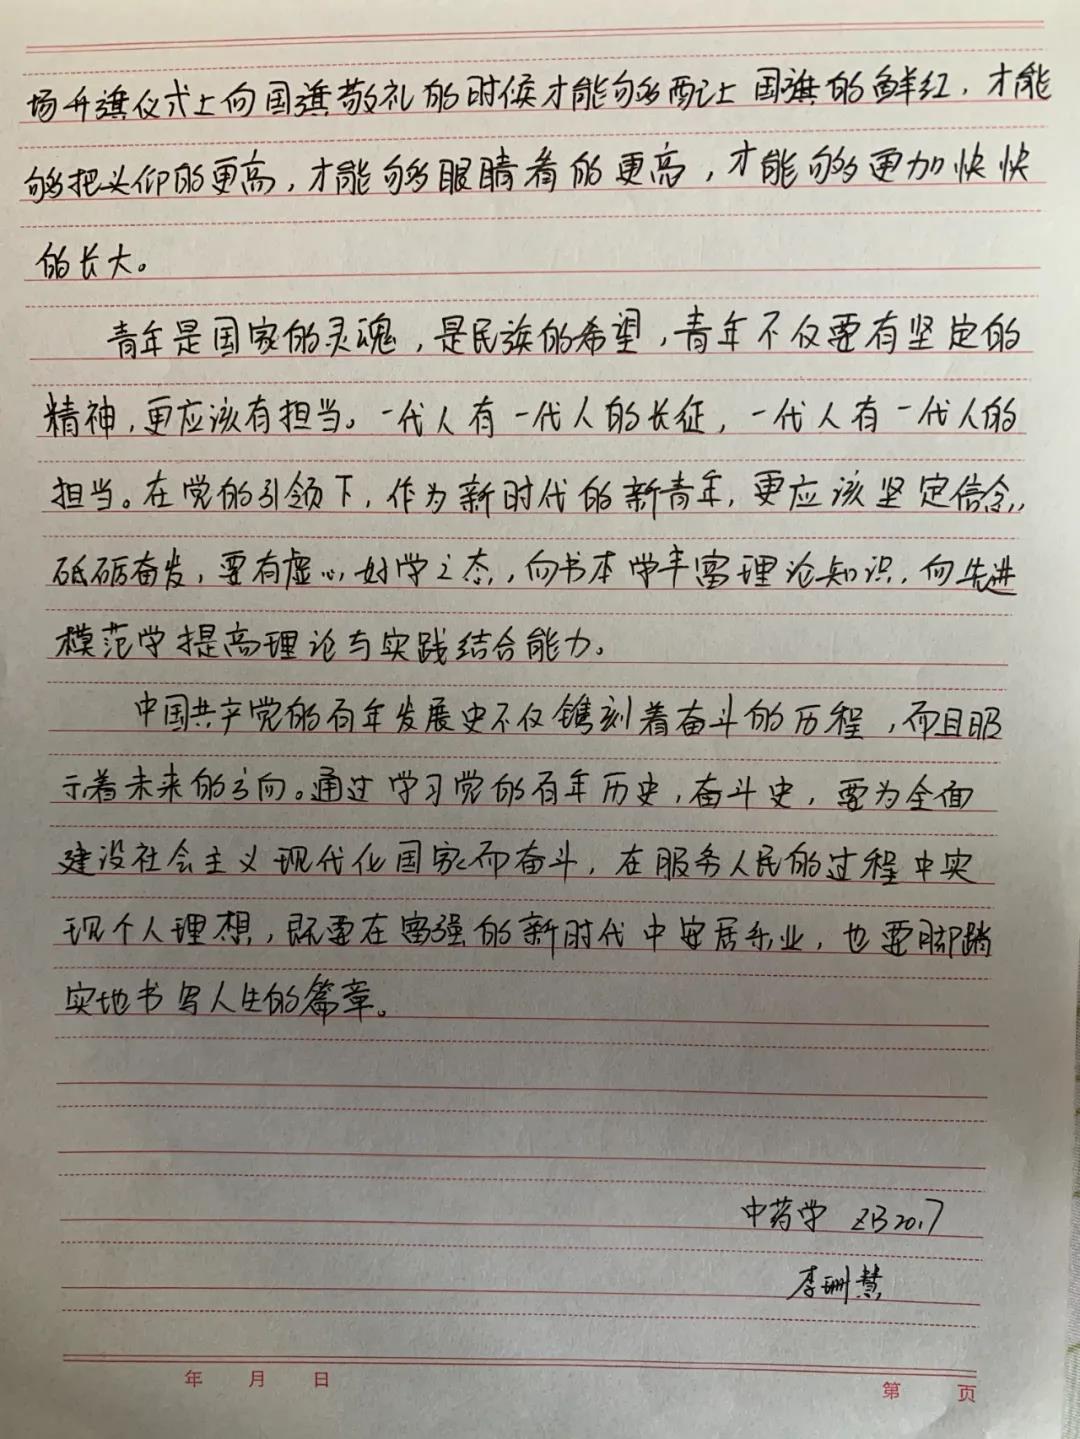 场升旗仪式上向国旗敬礼的时候才能够配上国旗的鲜红，才能
够把头仰的更高，才能够眼睛看的更高，才能够更加快快
的长大。
青年是国家的灵魂，是民族的希望，青年不仅要有坚定的
精神，更应该有担当。一代人有一代人的长征，一代人有一代人的
担当。在党的引领下，作为新时代的新青年，更应该坚定信念，
砥砺奋发，要有虚心好学之态，向书本学丰富理论知识，向先进
模范学提高理论与实践结合能力。
中国共产党的百年发展史不仅镌刻着奋斗的历程，而且昭
示着未来的方向。通过学习党的百年历史，奋斗史，要为全面
建设社会主义现代化国家而奋斗，在服务人民的过程中实
现个人理想，既要在富强的新时代中安居乐业，也要脚踏
实地书写人生的篇章。
中药学 ZB20.7
李珊慧
年 月 日
第 页